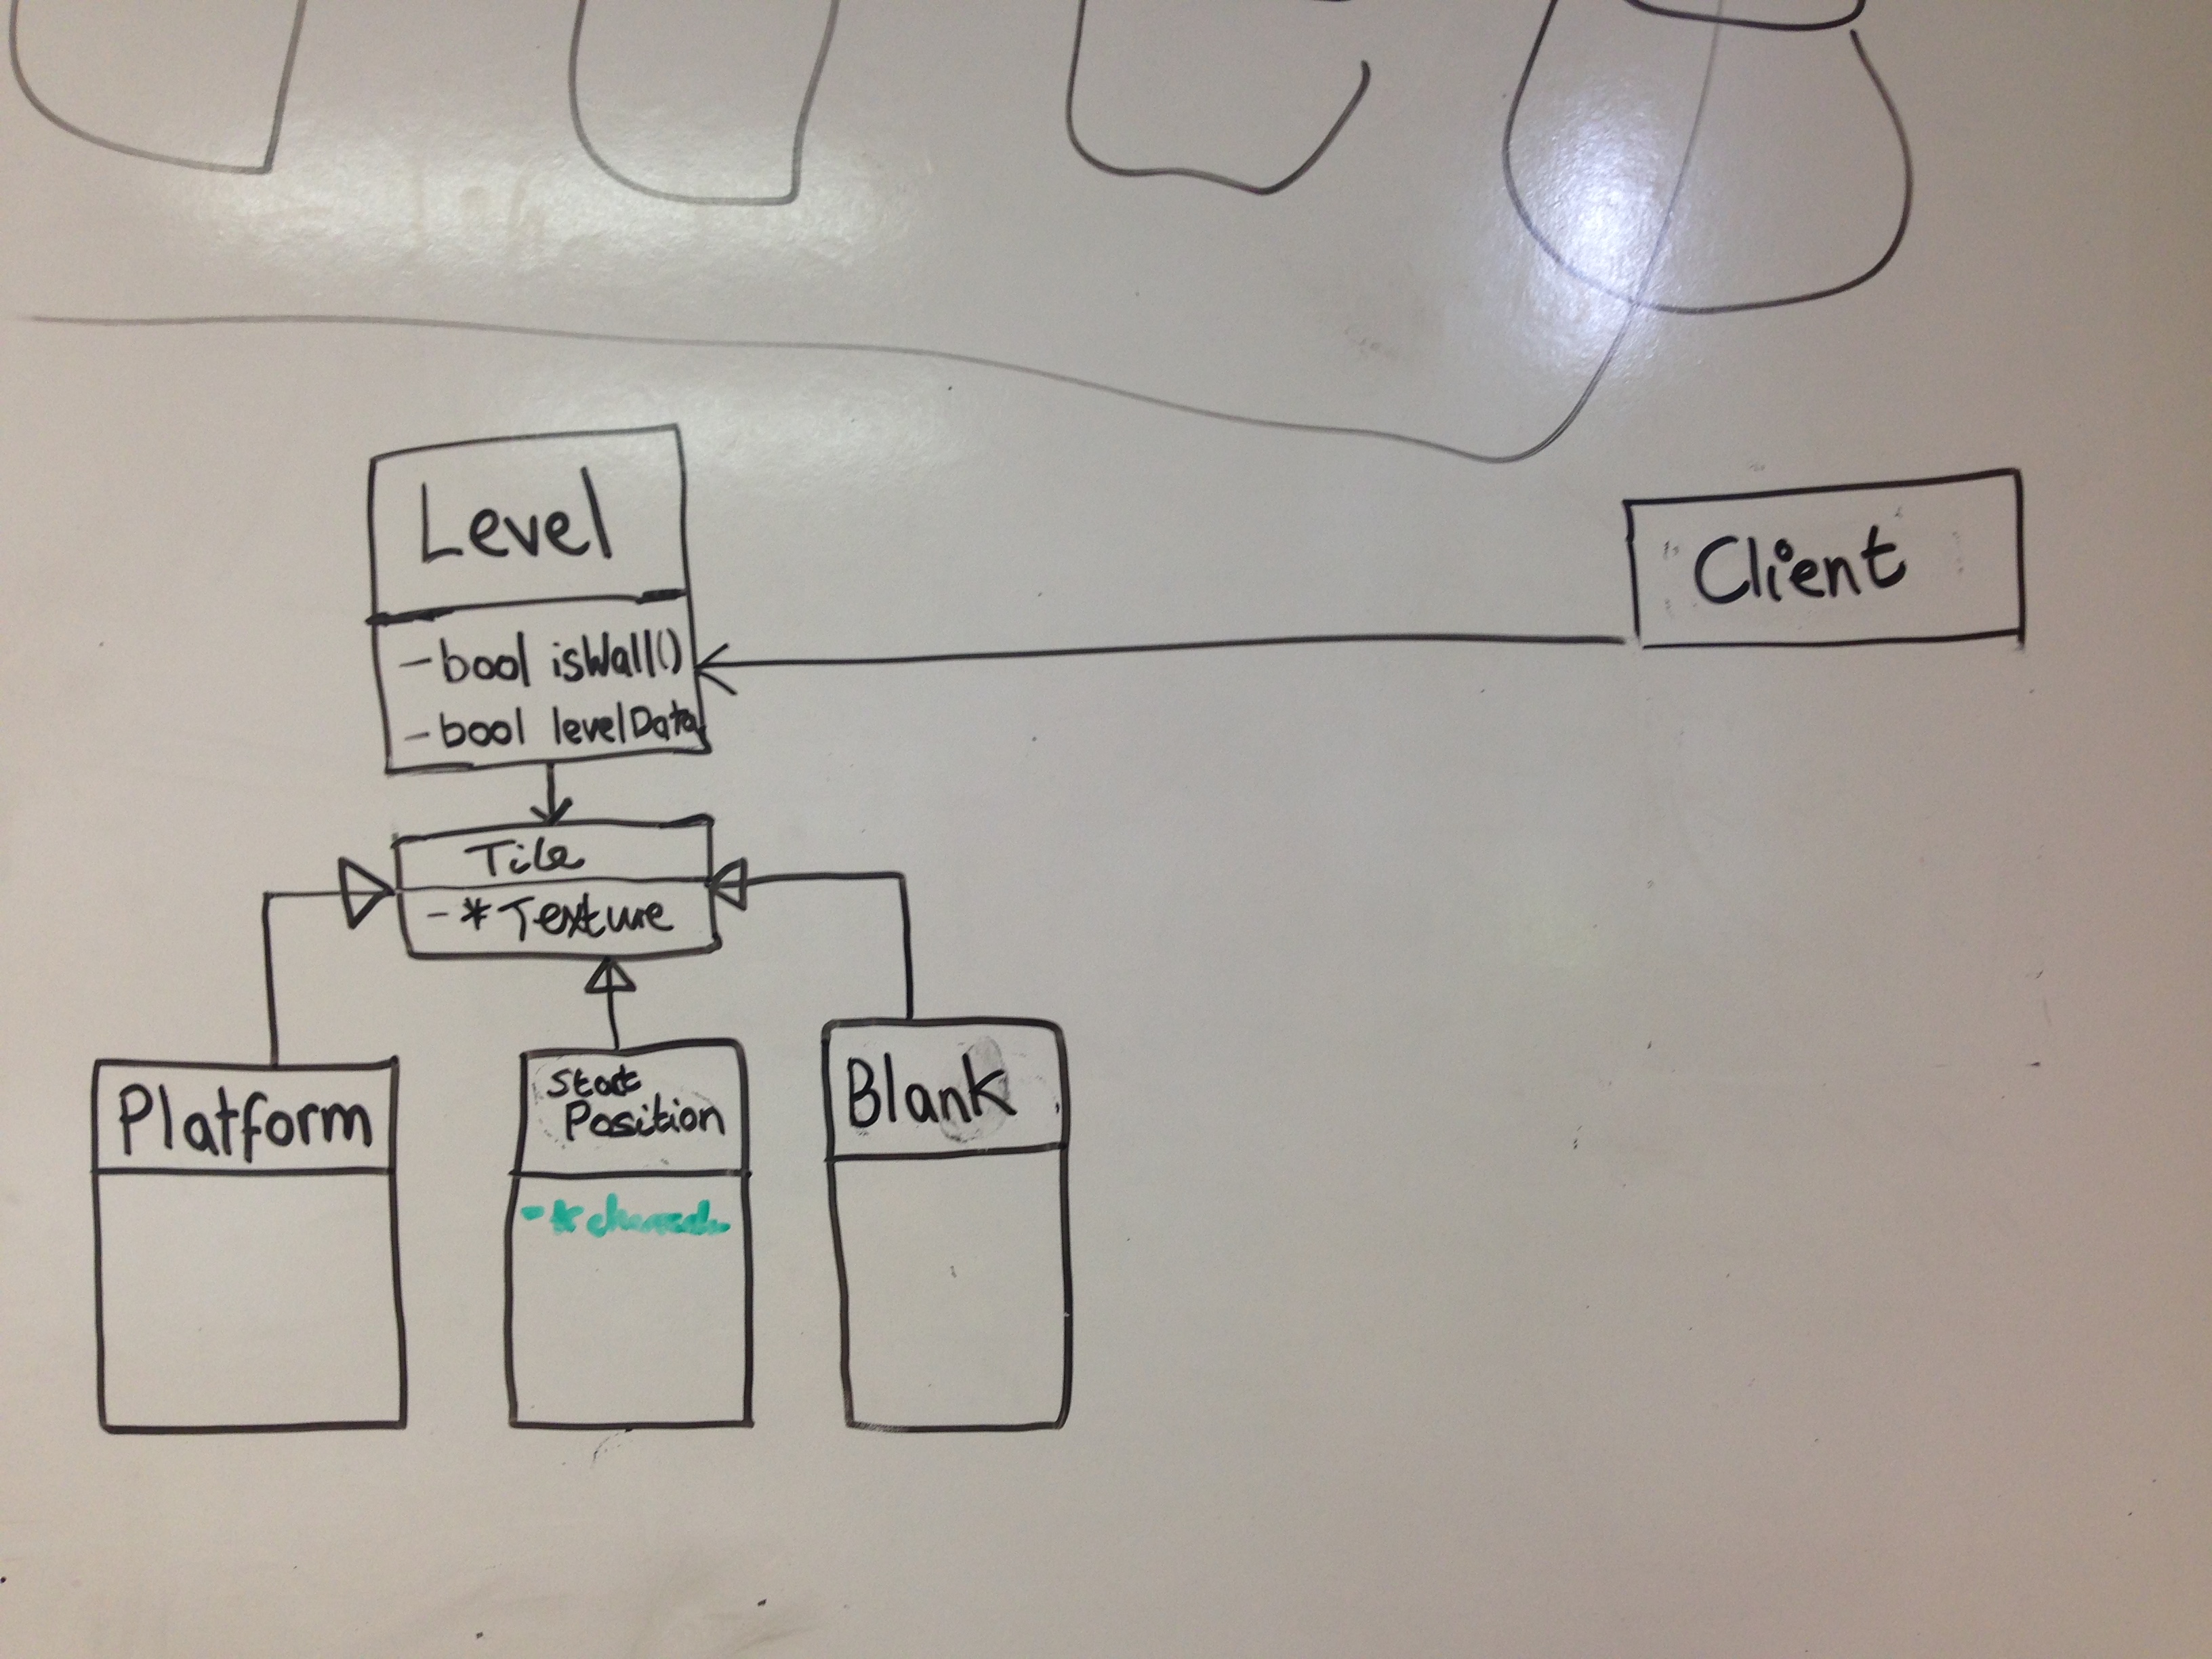 Level
- bool isWall()
- bool levelData
Client
Tile
- * Texture
Platform
Start
Position
Blank
- *